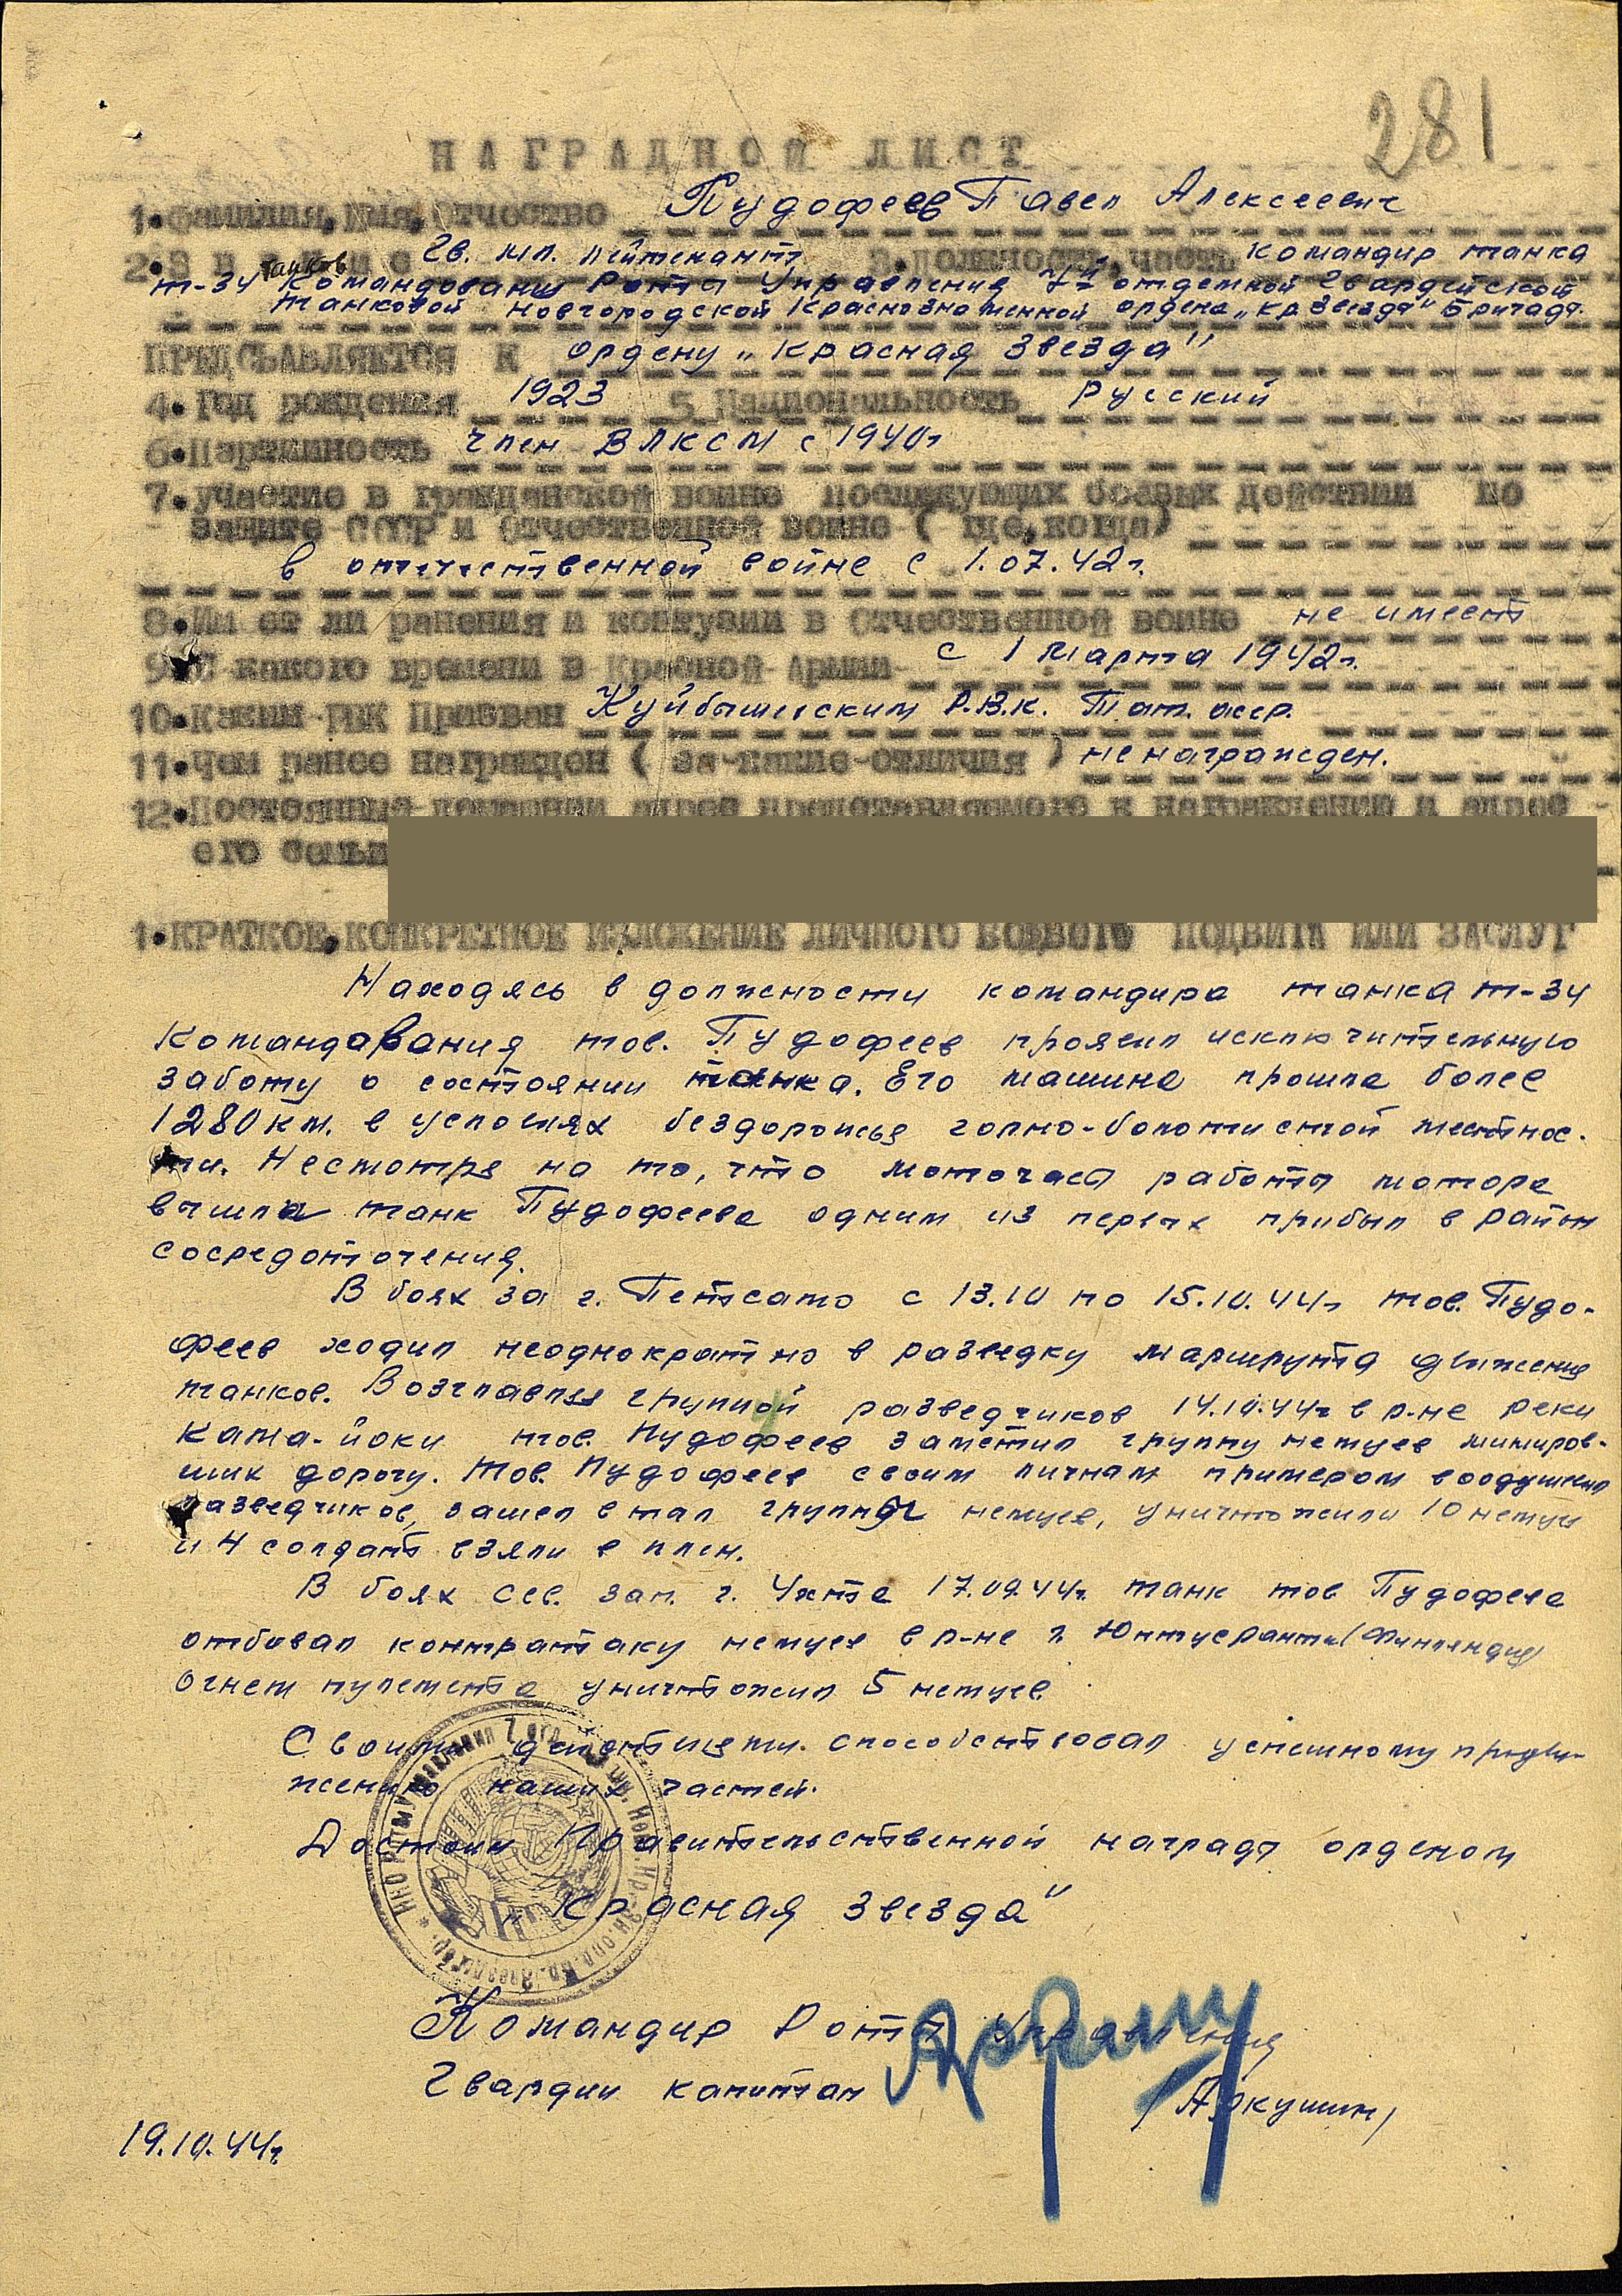 281
НАГРАДНОЙ ЛИСТ
1. Фамилия, Имя, Отчество Пудофеев Павел Алексеевич
2. Гв. мл. лейтенант 3. Должность, часть Командир танка
Т-34 танков Командования Роты Управления 7й отдельной Гвардейской
танковой Новгородской Краснознаменной ордена „Кр Звезда" Бригады.
ПРЕДСЬАВЛЯЕТСЯ К ордену „Красная Звезда"
4. Год рождения 1923 5 Национальность Русский
6. Партийность член ВЛКСМ с 1940г
7. участие в гражданской войне последующих боевых действий по
защите СССР и Отчественной войне ( где, когда)
в отечественной войне с 1.07.42г.
8. Им ет ли ранения и контузии в Отчественной войне не имеет
9. С какого времени в Красной Армии с 1 марта 1942г.
10. Каким РВК Призван Куйбышевским Р.В.К. Тат. асср.
11. Чем ранее награжден ( за какие отличия ) не награжден.
12. Постоянный домашний адрес представляемого к награждению и адрес
его семьи
1. КРАТКОЕ, КОНКРЕТНОЕ ИЗЛОЖЕНИЕ ЛИЧНОГО БОЕВОГО ПОДВИГА ИЛИ ЗАСЛУГ
Находясь в должности командира танка Т-34
Командования тов. Пудофеев проявил исключительную
заботу о состоянии танка. Его машина прошла более
1280 км. в условиях бездорожья горно-болотистой местнос-
ти. Несмотря на то, что моточасы работы мотора
вышли танк Пудофеева одним из первых прибыл в район
сосредоточения.
В боях за г. Петсамо с 13.10 по 15.10.44г тов. Пудо-
феев ходил неоднократно в разведку маршрута движения
танков. Возглавляя группой разведчиков 14.10.44г в р-не реки
Кама-йоки тов. Пудофеев заметил группу немцев миниров-
ших дорогу. Тов. Пудофеев своим личным примером воодушевил
разведчиков, зашел в тыл группы немцев, уничтожили 10 немцев
и 4 солдат взяли в плен.
В боях сев. зап. г. Ухта 17.09.44г. танк тов Пудофеева
отбивал контратаку немцев в р-не г. Юнтусранта (Финляндия)
Огнем пулемета уничтожил 5 немцев.
Своими действиями способствовал успешному продви-
жению наших частей.
Достоин Правительственной награды орденом
„Красная Звезда"
Командир Роты Управления
Гвардии капитан /Аркушин/
19.10.44г.